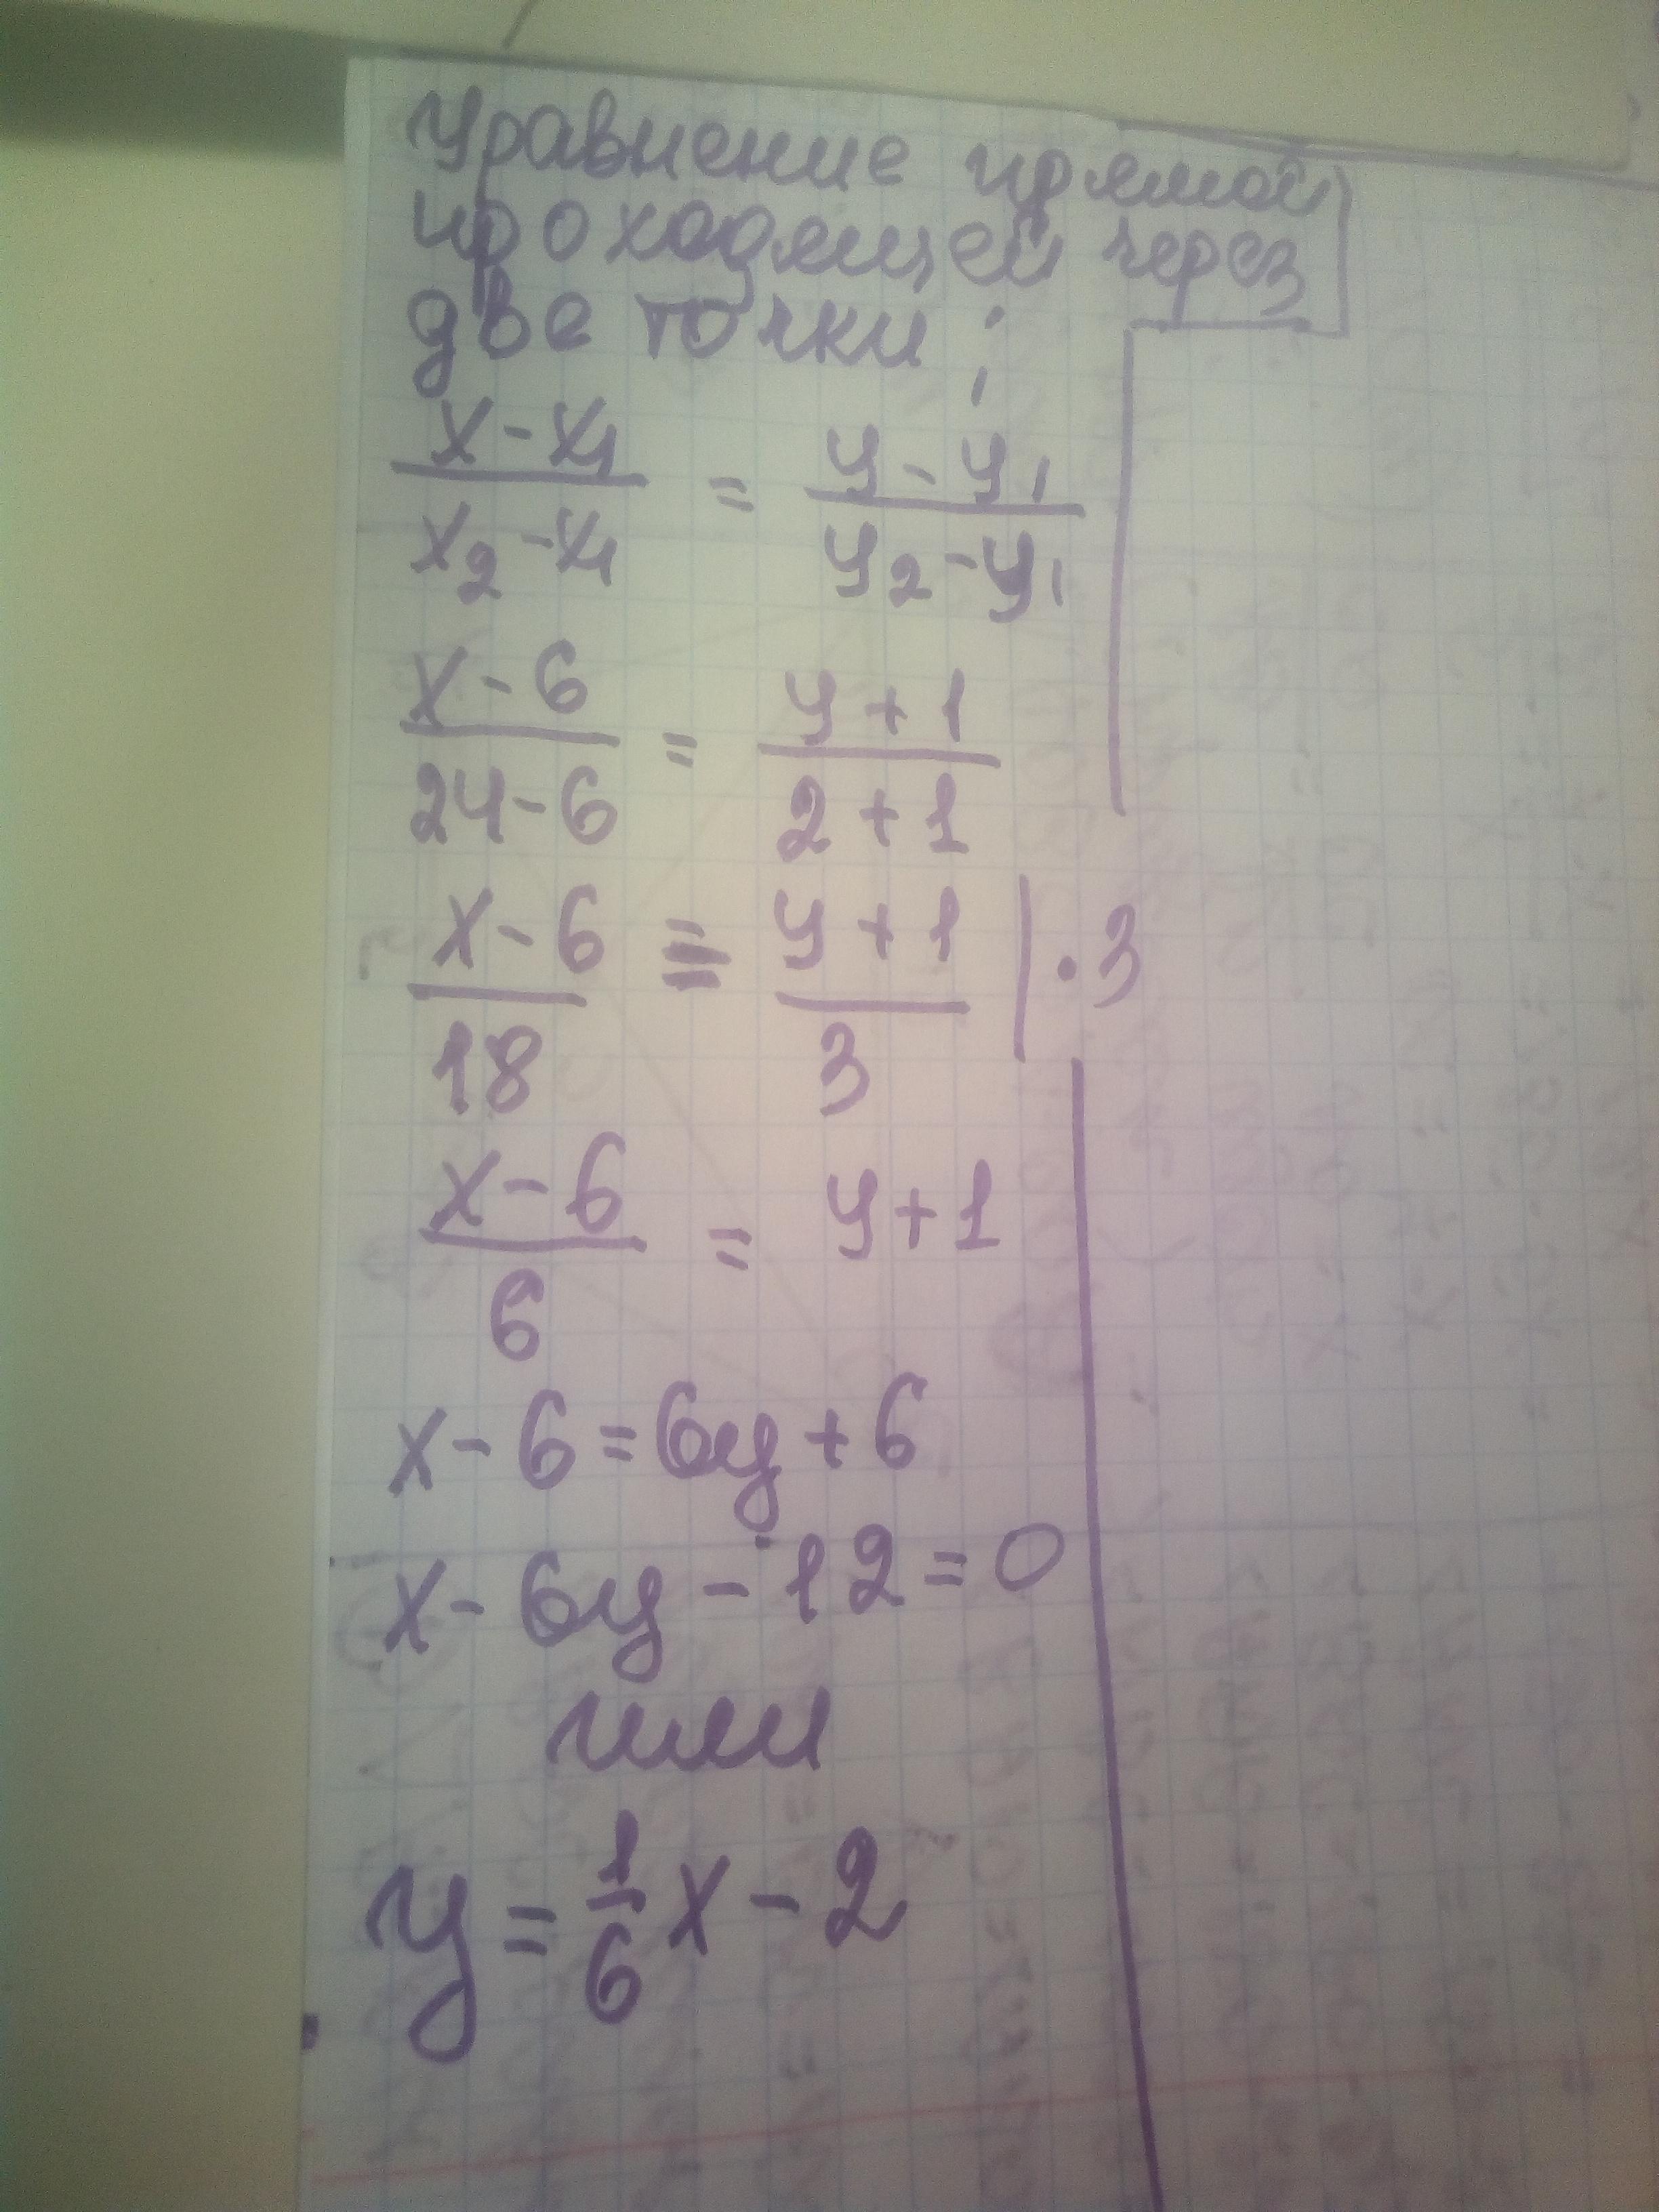 Уравнение прямой
проходящей через
две точки:
x - x₁ / x₂ - x₁ = y - y₁ / y₂ - y₁
x - 6 / 24 - 6 = y + 1 / 2 + 1
x - 6 / 18 = y + 1 / 3 | · 3
x - 6 / 6 = y + 1
x - 6 = 6y + 6
x - 6y - 12 = 0
или
y = 1/6 x - 2